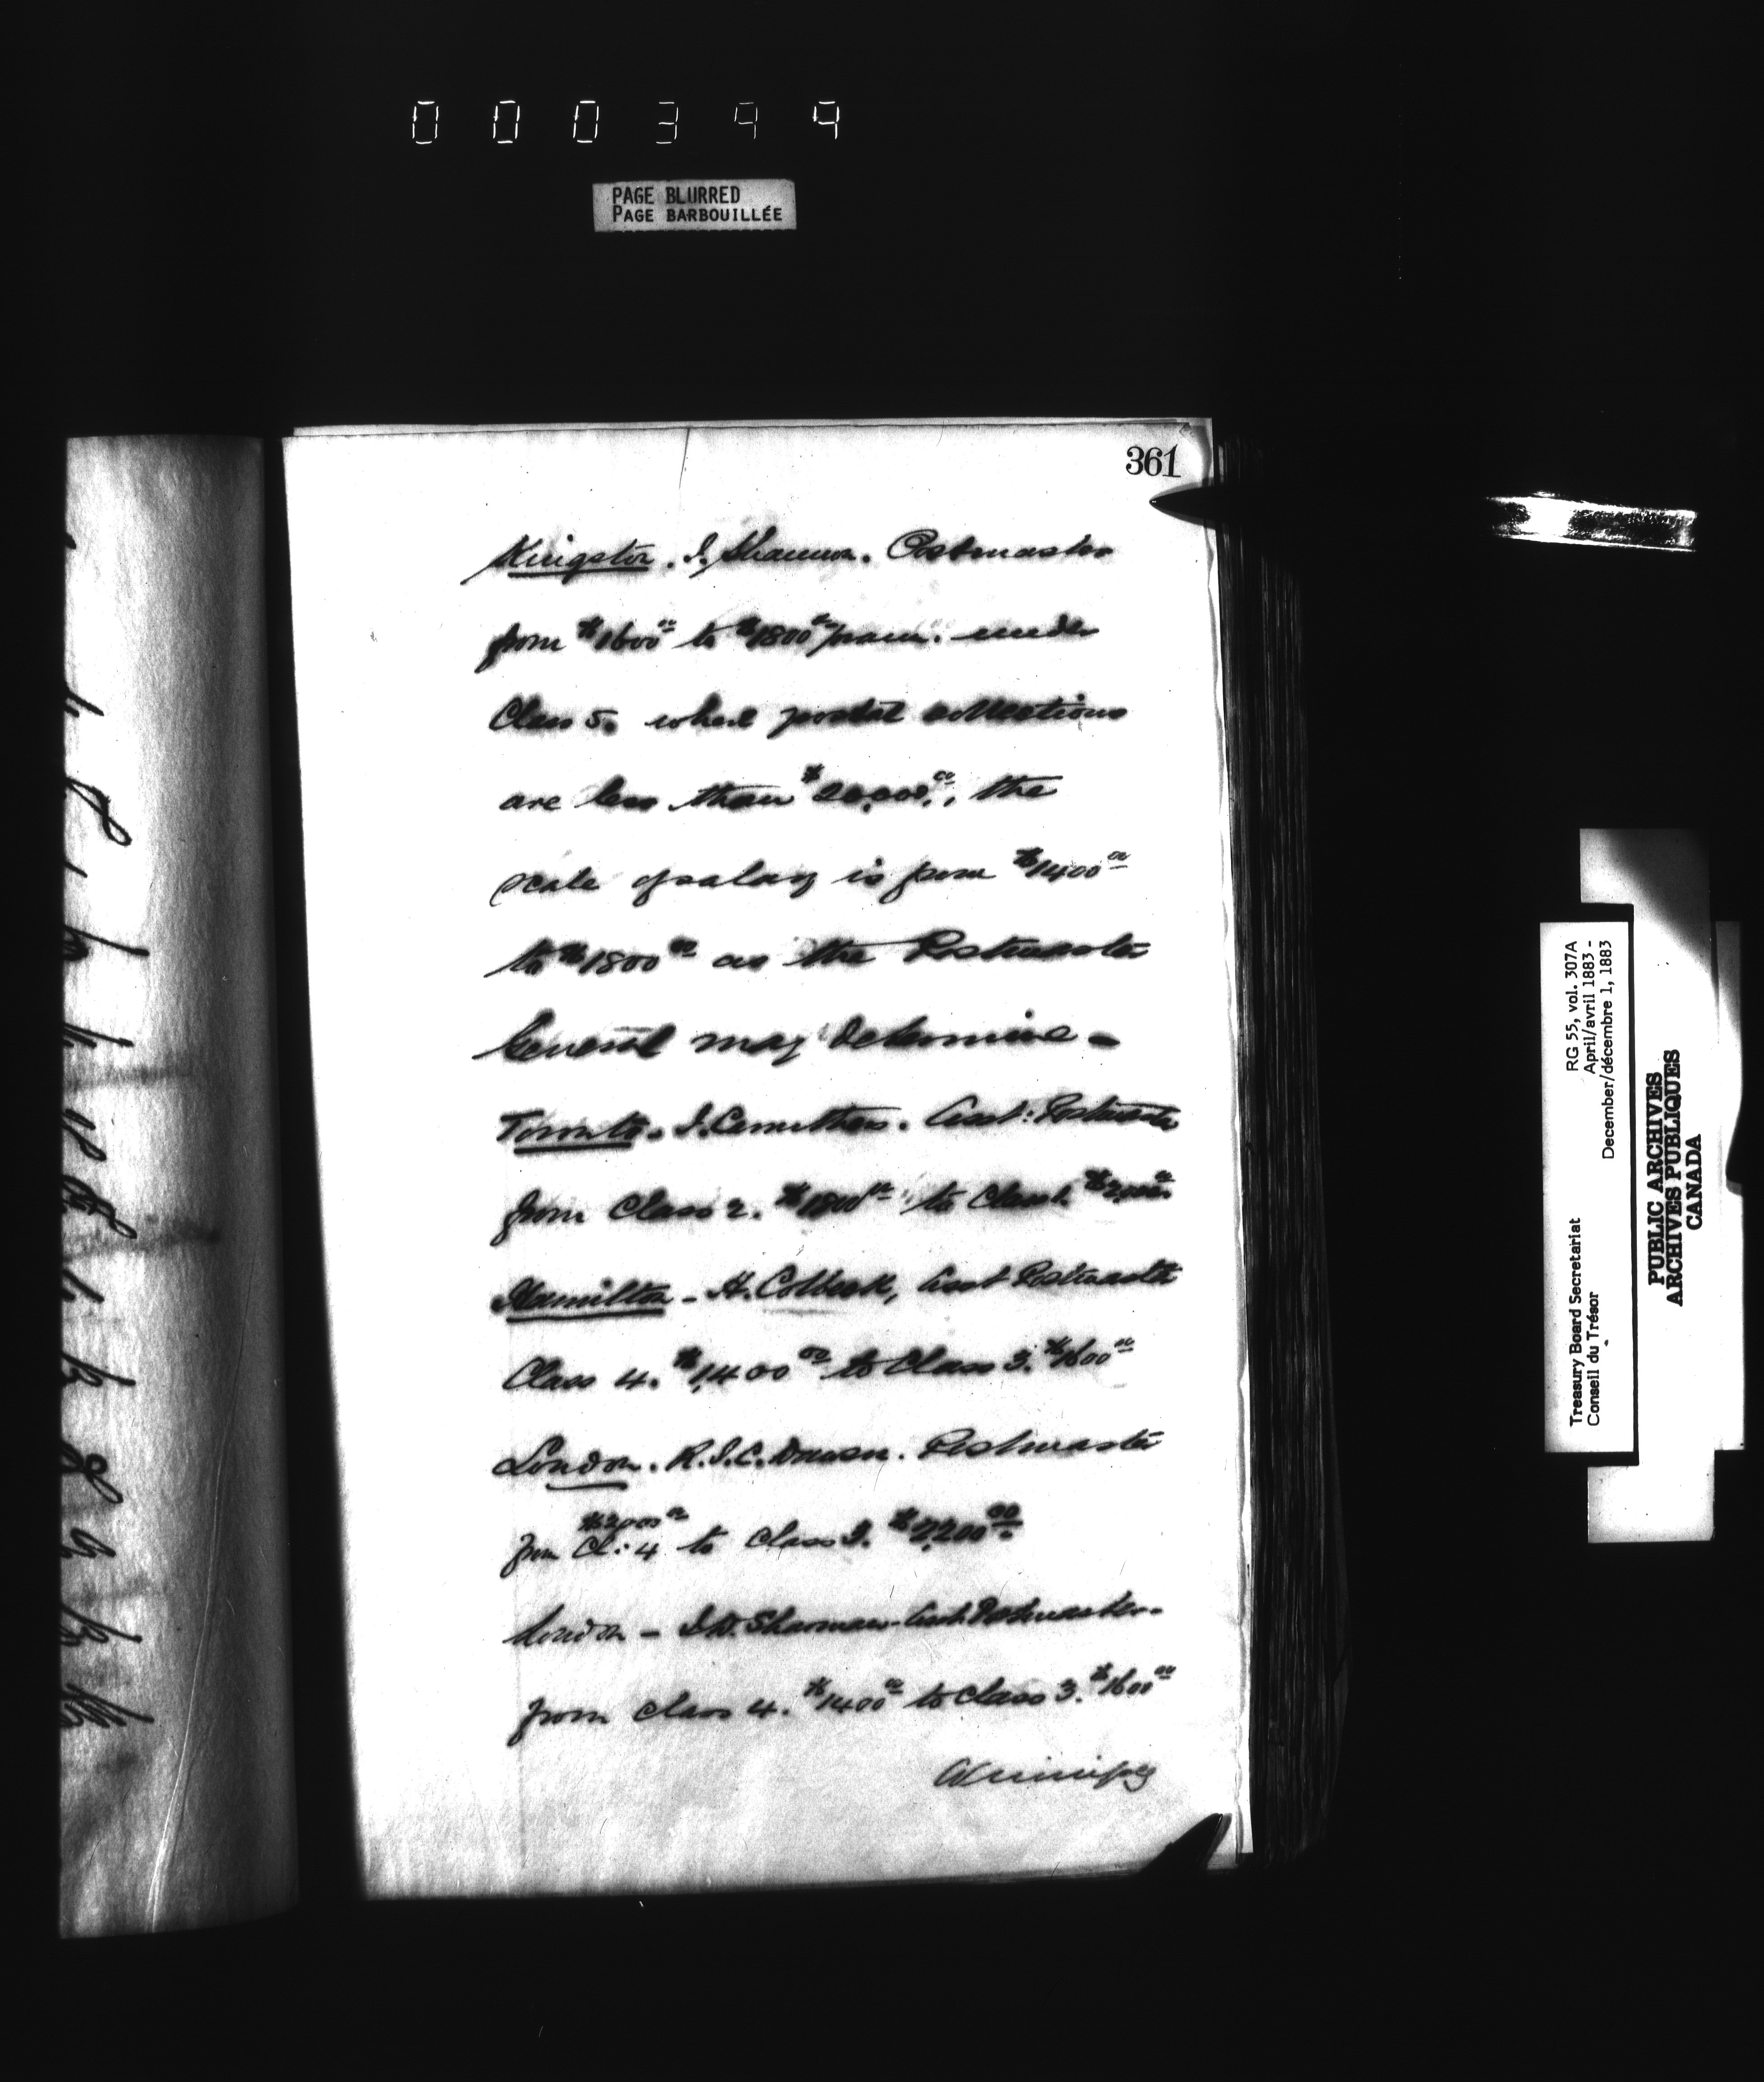 000399
PAGE BLURRED
PAGE BARBOUILLÉE
361
Kingston. J. Shannon. Postmaster
from $1600 00 to $1800 00 p. ann. under
Class 5. where postal collections
are less than $20,000 00, the
scale of salary is from $1400 00
to $1800 00 as the Postmaster
General may determine -
Toronto. J. Carruthers. Asst: Postmaster
from Class 2. $1800 00 to Class 1. $2,000 00
Hamilton - H. Colbeck, Asst Postmaster
Class 4. $1,400 00 to Class 3. $1600 00
London. R.J.C. Dawson. Postmaster
$2,000 00
from Cl: 4 to Class 3. $2,200 00
London - Sharman - Asst. Postmaster -
from Class 4. $1400 00 to Class 3. $1600 00
Winnipeg
Treasury Board Secretariat
Conseil du Trésor
RG 55, vol. 307A
April/avril 1883 -
December/décembre 1, 1883
PUBLIC ARCHIVES
ARCHIVES PUBLIQUES
CANADA